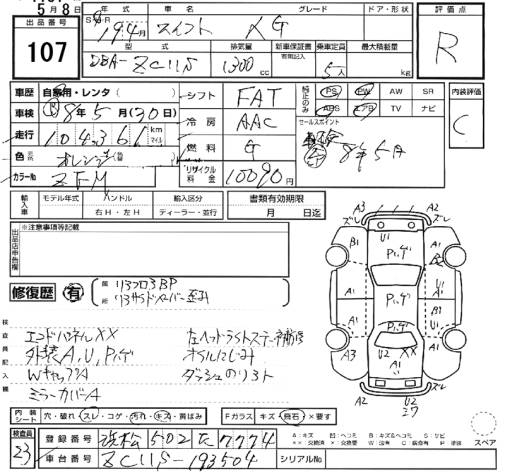 5月8日
出品番号
107
年式 車名 グレード ドア・形状
19年4月 スイフト XG
型式 排気量 新車保証書 乗車定員 最大積載量
DBA-ZC11S 1300cc 有無記入 5人 kg
評価点
R
車歴 自家用・レンタ( )
車検 8年5月(30日)
走行 104,361 km マイル
色 オレンジ
カラーNo ZFM
シフト FAT
冷房 AAC
燃料 G
リサイクル料金 10090円
純正のみ PS PW AW SR
ABS エアB TV ナビ
セールスポイント
8年5月
内装評価
C
輸入車 モデル年式 ハンドル 輸入区分
年 右H・左H ディーラー・並行
書類有効期限
月 日迄
出品店申告欄
※注意事項等記載
修復歴 有
箇所 リヌフロ3BP
検査員記入欄
エンドパネルXX
外装A,U,Pハゲ
WキャップA
ミラーカバーA
左ヘットライトステー補修
オイルにじみ
ダッシュのリフト
A3 ズレ A2 ズレ
B1 U1 A1
Pハゲ
A1 Pハゲ A2
U1
A1 Pハゲ A1
A3 U2 XX A1
A2 U2
内装シート 穴・破れ・スレ・コゲ・汚れ・キズ・黄ばみ
Fガラス キズ・飛石・×要す
スペア
A:キズ U:ヘコミ B:キズ&ヘコミ S:サビ
検査員
23
登録番号 浜松502 た 7774
車台番号 ZC11S-193504 シリアルNo